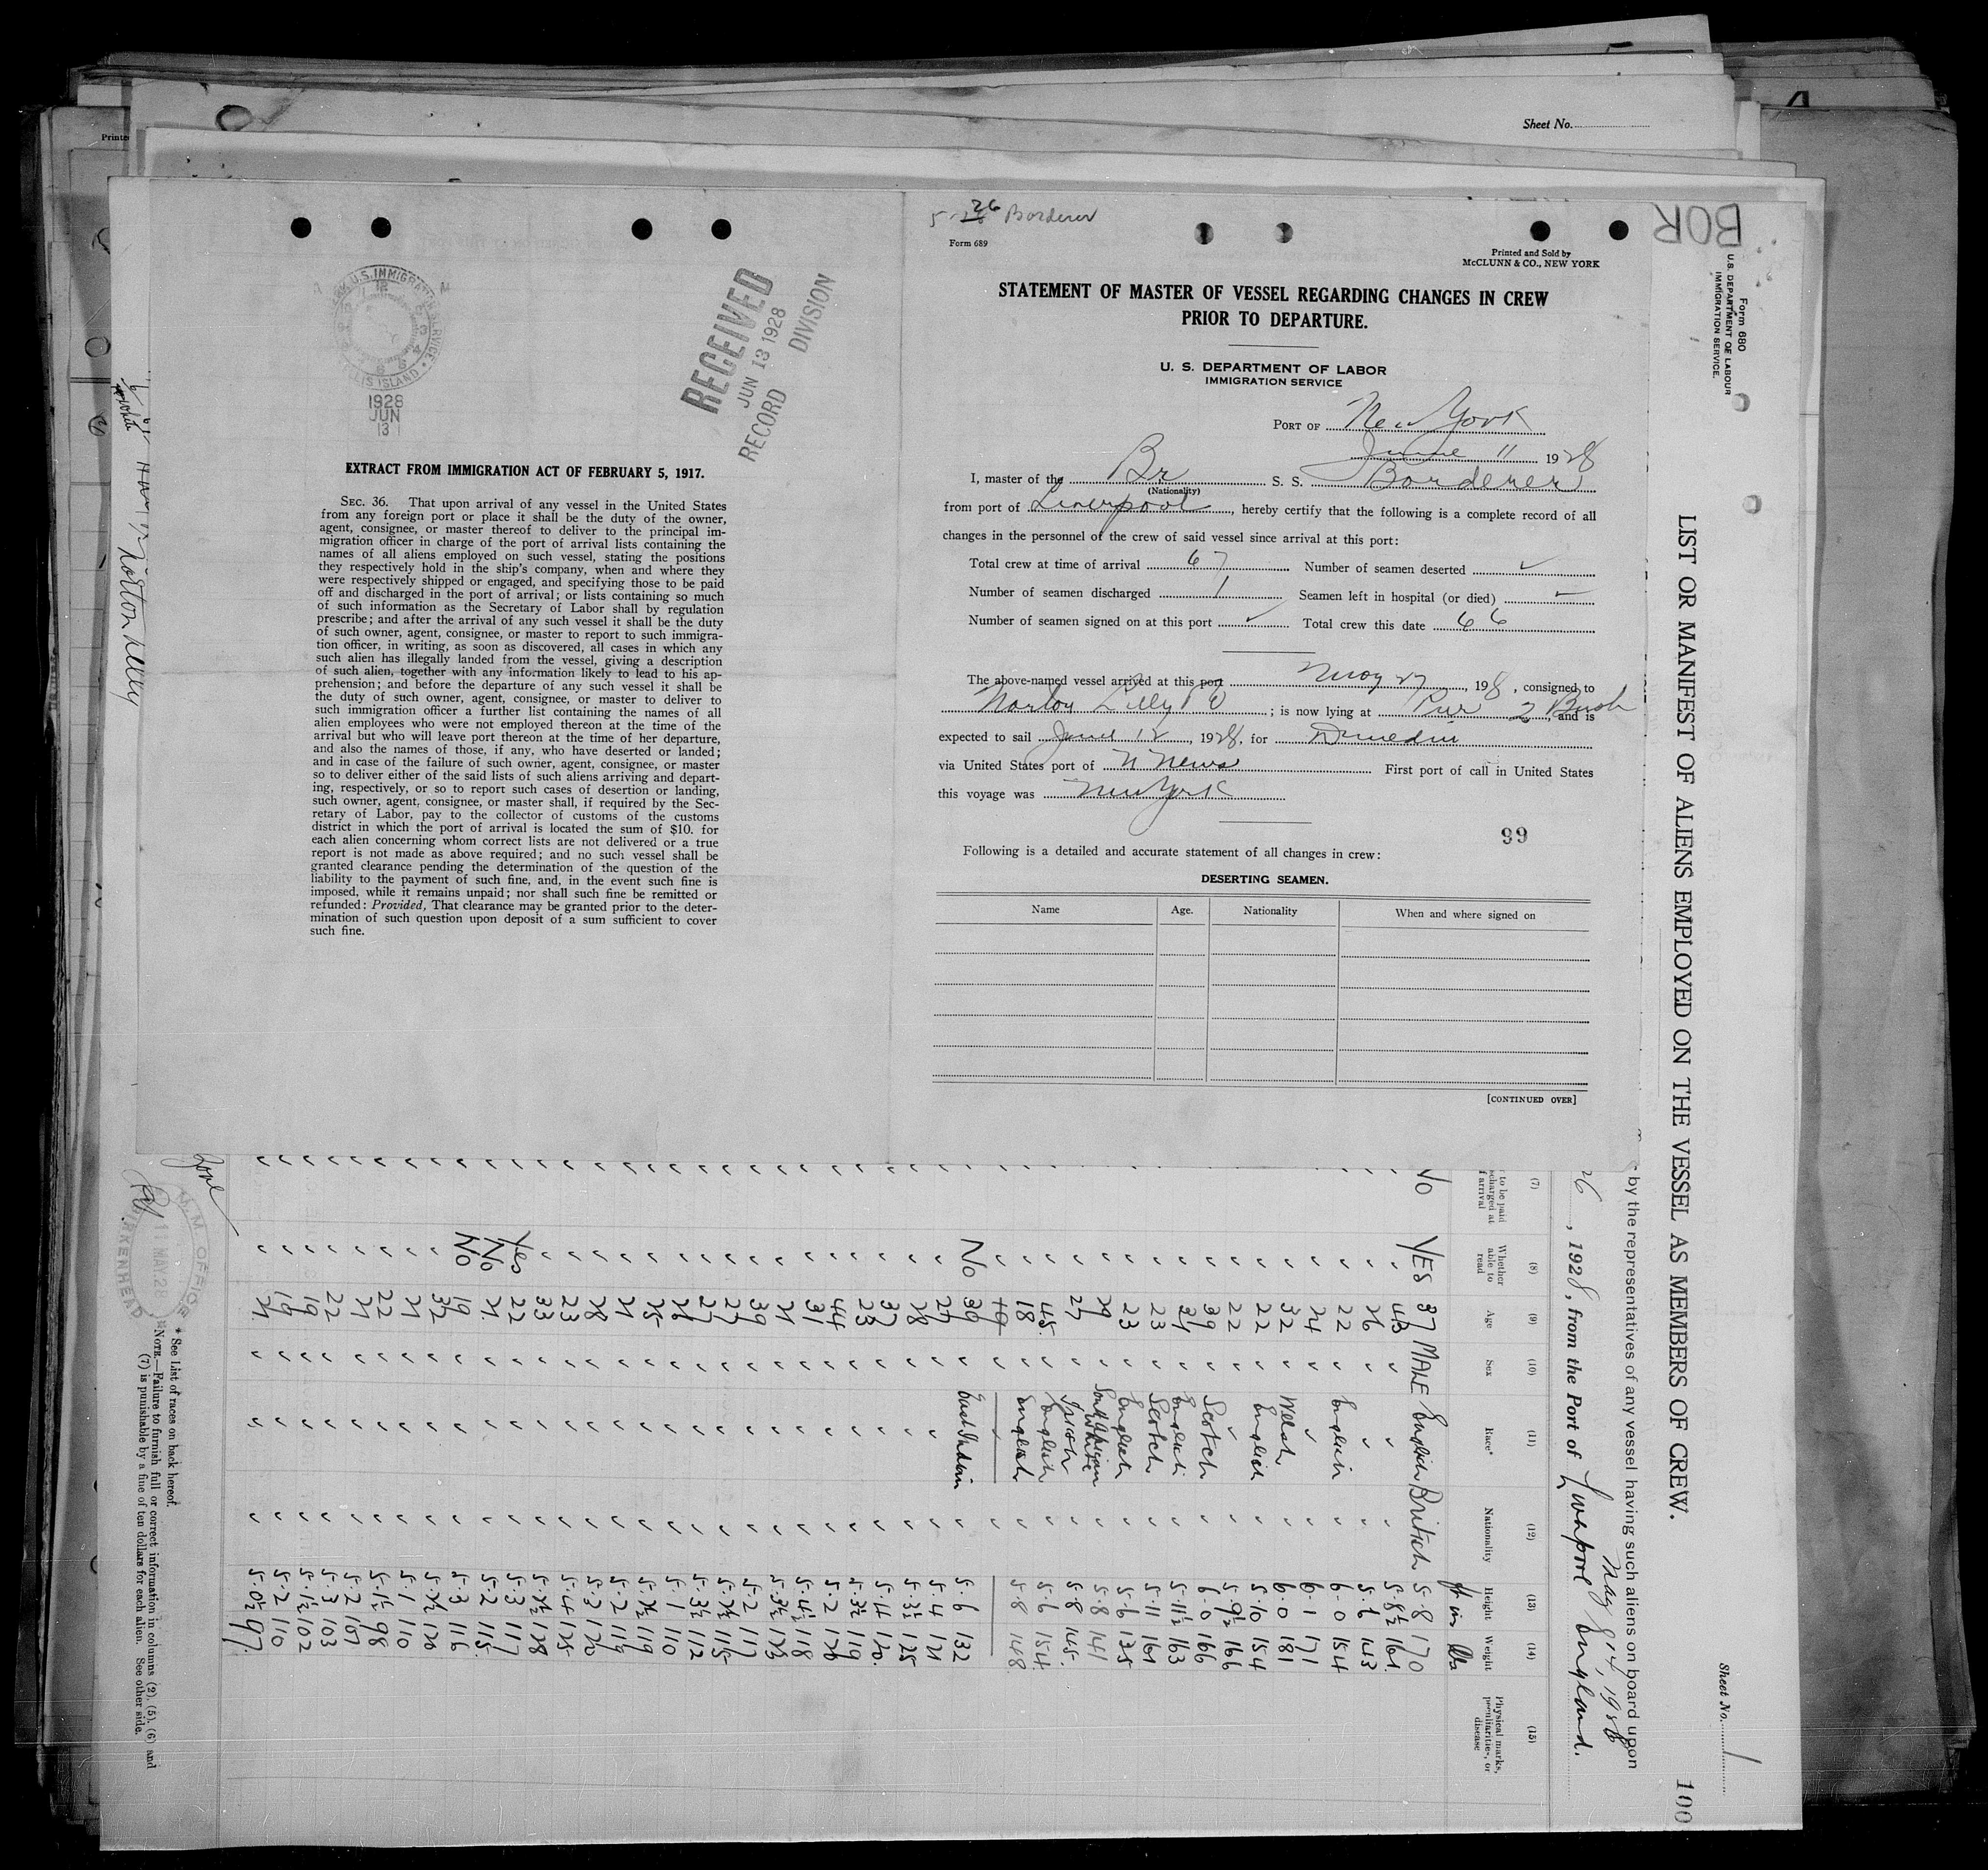 Printed
Sheet No.
5-26 Borderer
Form 689
Printed and Sold by
McCLUNN & CO., NEW YORK
STATEMENT OF MASTER OF VESSEL REGARDING CHANGES IN CREW
PRIOR TO DEPARTURE.
U. S. DEPARTMENT OF LABOR
IMMIGRATION SERVICE
PORT OF New York
June 11 1928
I, master of the Br S. S. Borderer
(Nationality)
from port of Liverpool, hereby certify that the following is a complete record of all
changes in the personnel of the crew of said vessel since arrival at this port:
Total crew at time of arrival 67 Number of seamen deserted ✓
Number of seamen discharged 1 Seamen left in hospital (or died)
Number of seamen signed on at this port ✓ Total crew this date 66
The above-named vessel arrived at this port May 27, 198, consigned to
Norton Lilly Co; is now lying at Pier 2 Bush, and is
expected to sail June 12, 1928, for Dunedin
via United States port of N News First port of call in United States
this voyage was New York
99
Following is a detailed and accurate statement of all changes in crew:
DESERTING SEAMEN.
Name Age. Nationality When and where signed on
[CONTINUED OVER]
U.S. IMMIGRATION SERVICE
ELLIS ISLAND
1928
JUN
13
RECEIVED
JUN 13 1928
RECORD DIVISION
EXTRACT FROM IMMIGRATION ACT OF FEBRUARY 5, 1917.
SEC. 36. That upon arrival of any vessel in the United States
from any foreign port or place it shall be the duty of the owner,
agent, consignee, or master thereof to deliver to the principal im-
migration officer in charge of the port of arrival lists containing the
names of all aliens employed on such vessel, stating the positions
they respectively hold in the ship's company, when and where they
were respectively shipped or engaged, and specifying those to be paid
off and discharged in the port of arrival; or lists containing so much
of such information as the Secretary of Labor shall by regulation
prescribe; and after the arrival of any such vessel it shall be the duty
of such owner, agent, consignee, or master to report to such immigra-
tion officer, in writing, as soon as discovered, all cases in which any
such alien has illegally landed from the vessel, giving a description
of such alien, together with any information likely to lead to his ap-
prehension; and before the departure of any such vessel it shall be
the duty of such owner, agent, consignee, or master to deliver to
such immigration officer a further list containing the names of all
alien employees who were not employed thereon at the time of the
arrival but who will leave port thereon at the time of her departure,
and also the names of those, if any, who have deserted or landed;
and in case of the failure of such owner, agent, consignee, or master
so to deliver either of the said lists of such aliens arriving and depart-
ing, respectively, or so to report such cases of desertion or landing,
such owner, agent, consignee, or master shall, if required by the Sec-
retary of Labor, pay to the collector of customs of the customs
district in which the port of arrival is located the sum of $10. for
each alien concerning whom correct lists are not delivered or a true
report is not made as above required; and no such vessel shall be
granted clearance pending the determination of the question of the
liability to the payment of such fine, and, in the event such fine is
imposed, while it remains unpaid; nor shall such fine be remitted or
refunded: Provided, That clearance may be granted prior to the deter-
mination of such question upon deposit of a sum sufficient to cover
such fine.
BOR
Form 680
U. S. DEPARTMENT OF LABOUR
IMMIGRATION SERVICE.
Sheet No. 1
LIST OR MANIFEST OF ALIENS EMPLOYED ON THE VESSEL AS MEMBERS OF CREW. 100
by the representatives of any vessel having such aliens on board upon
26, 1928, from the Port of Liverpool England.
(7) (8) (9) (10) (11) (12) (13) (14) (15)
Whether able to read Age Sex Race* Nationality Height Weight Physical marks, peculiarities, or disease
ft in lbs
No YES 37 MALE English British 5-8 170
43 5-8½ 161
26 5-6 143
22 English 6-0 154
24 6-1 171
32 Welsh 6-0 181
22 English 5-10 154
22 5-9½ 166
39 Scotch 6-0 166
English 5-11½ 163
23 Scotch 5-11 161
23 English 5-6 135
29 South African White 5-8 141
27 Irish 5-8 145
45 English 5-6 154
18 English 5-8 148
No 39 East Indian 5-6 132
5-4 121
28 5-3½ 125
37 5-4 120
28 5-3½ 119
44 5-2 126
31 5-4½ 118
21 5-3½ 123
39 5-2 117
27 115
27 5-3½ 112
26 5-1 110
25 119
21 5-2 115
28 5-3 120
23 5-4 125
33 128
Yes 22 5-3 117
No 21 5-2 115
No 19 5-3 116
32 120
21 5-1 110
22 5-1½ 98
21 5-2 107
22 5-3 103
19 5-1½ 102
19 5-2 110
21 5-0½ 97
* See List of races on back hereof.
NOTE.—Failure to furnish full or correct information in columns (2), (5), (6) and
(7) is punishable by a fine of ten dollars for each alien. See other side.
M.M. OFFICE
11 MAY 28
BIRKENHEAD